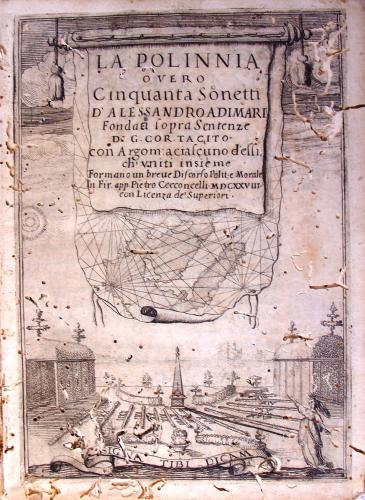 LA POLINNIA
OVERO
Cinquanta Sonetti
D'ALESSANDRO ADIMARI
Fondati sopra Sentenze
DI G. COR. TACITO
con Argom: a ciascuno d'essi,
ch' uniti insieme
Formano un breve Discorso Polit. e Morale
In Fir. app. Pietro Cecconcelli. MDCXXVIII
con Licenza de' Superiori.
SIGNA TIBI DICAM